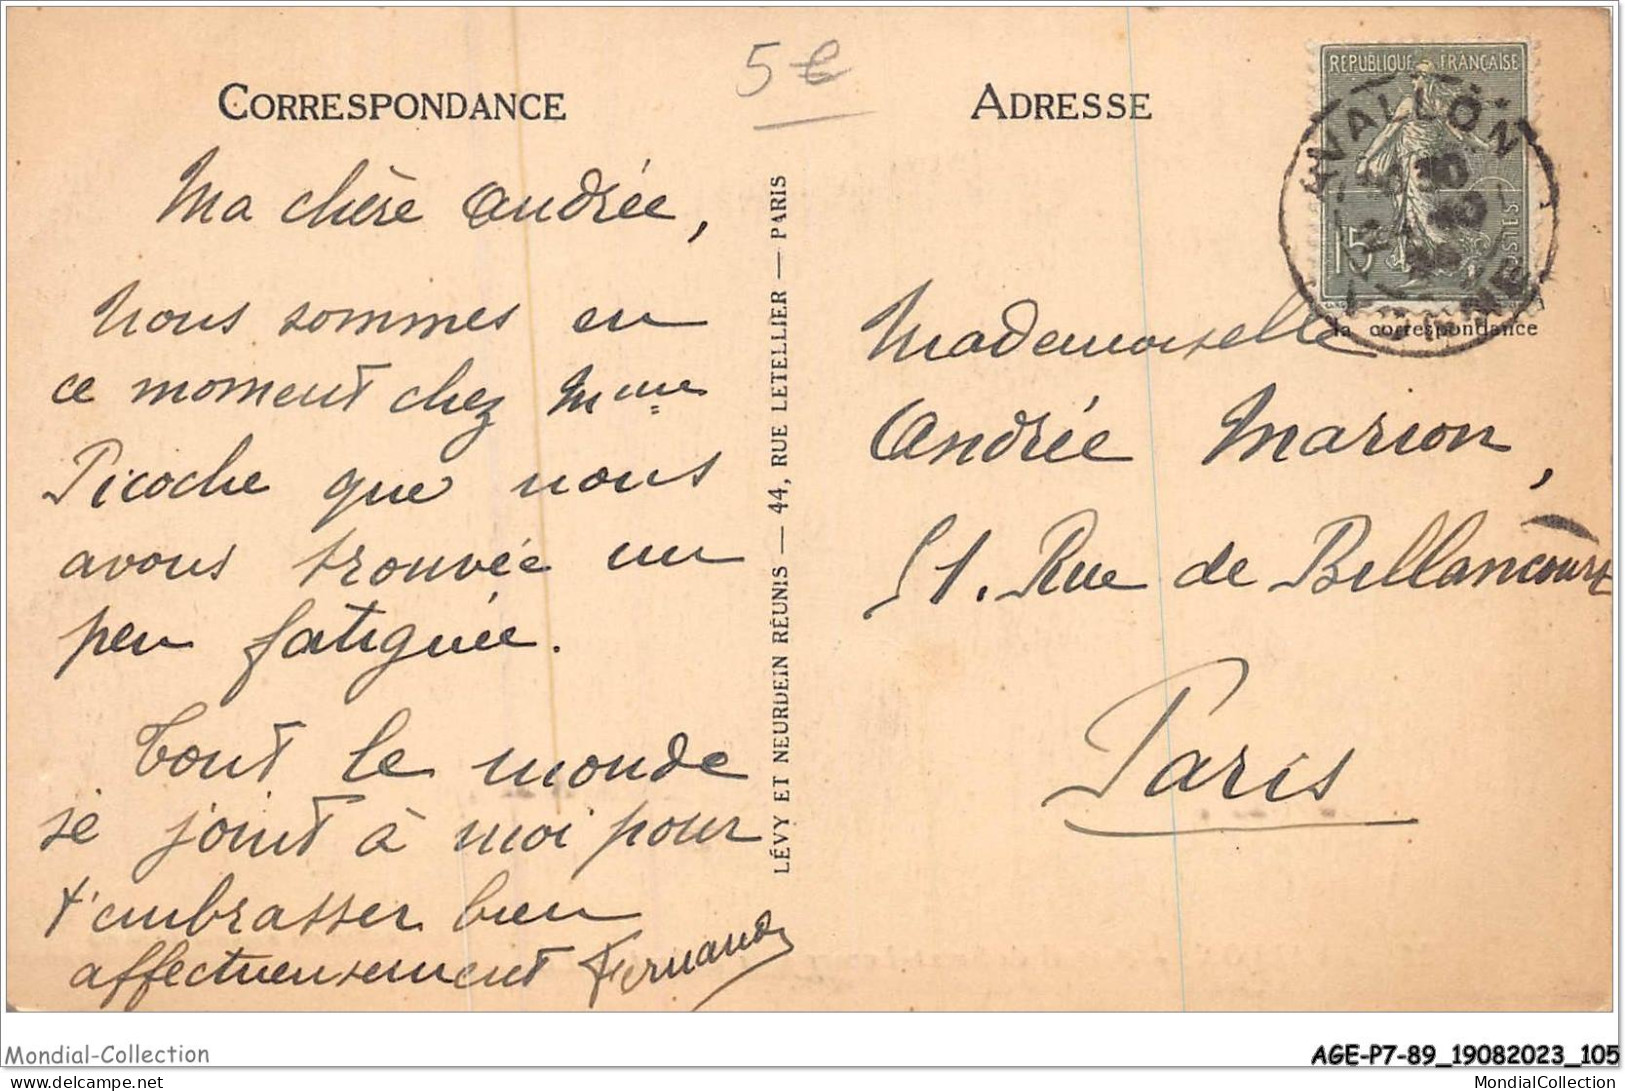 5€
CORRESPONDANCE
Ma chère Andrée,
Nous sommes en
ce moment chez Mme
Picoche que nous
avons trouvée un
peu fatiguée.
Tout le monde
se joint à moi pour
t'embrasser bien
affectueusement Fernand
LÉVY ET NEURDEIN RÉUNIS — 44, RUE LETELLIER — PARIS
ADRESSE
RÉPUBLIQUE FRANÇAISE
15
POSTES
AVALLON
YONNE
la correspondance
Mademoiselle
Andrée Marion,
51. Rue de Billancourt
Paris
Mondial-Collection
delcampe.net
AGE-P7-89_19082023_105
MondialCollection